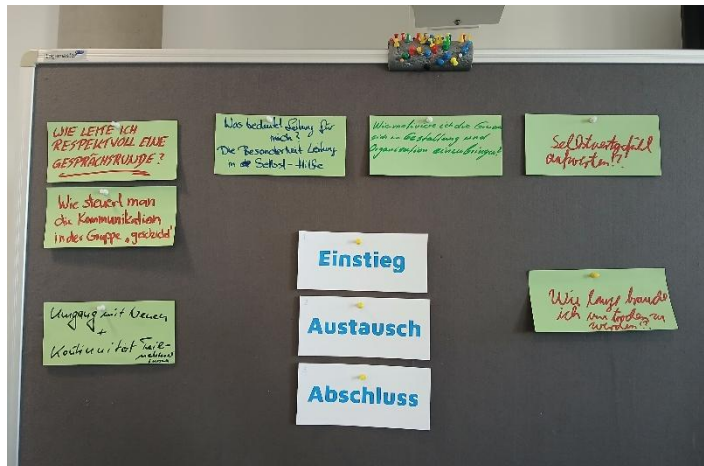 WIE LEITE ICH
RESPEKTVOLL EINE
GESPRÄCHSRUNDE?
Wie steuert man
die Kommunikation
in der Gruppe „geschickt"
Umgang mit Neuen
+
Kontinuität Teil-
Was bedeutet Leitung für
mich?
Die Besonderheit Leitung
in Selbst-Hilfe
Wie motiviere ich die Gruppe
sich in Gestaltung und
Organisation einzubringen?
Selbstwertgefühl
aufwerten!?
Einstieg
Austausch
Abschluss
Wie lange brauche
ich um trocken zu
werden!?